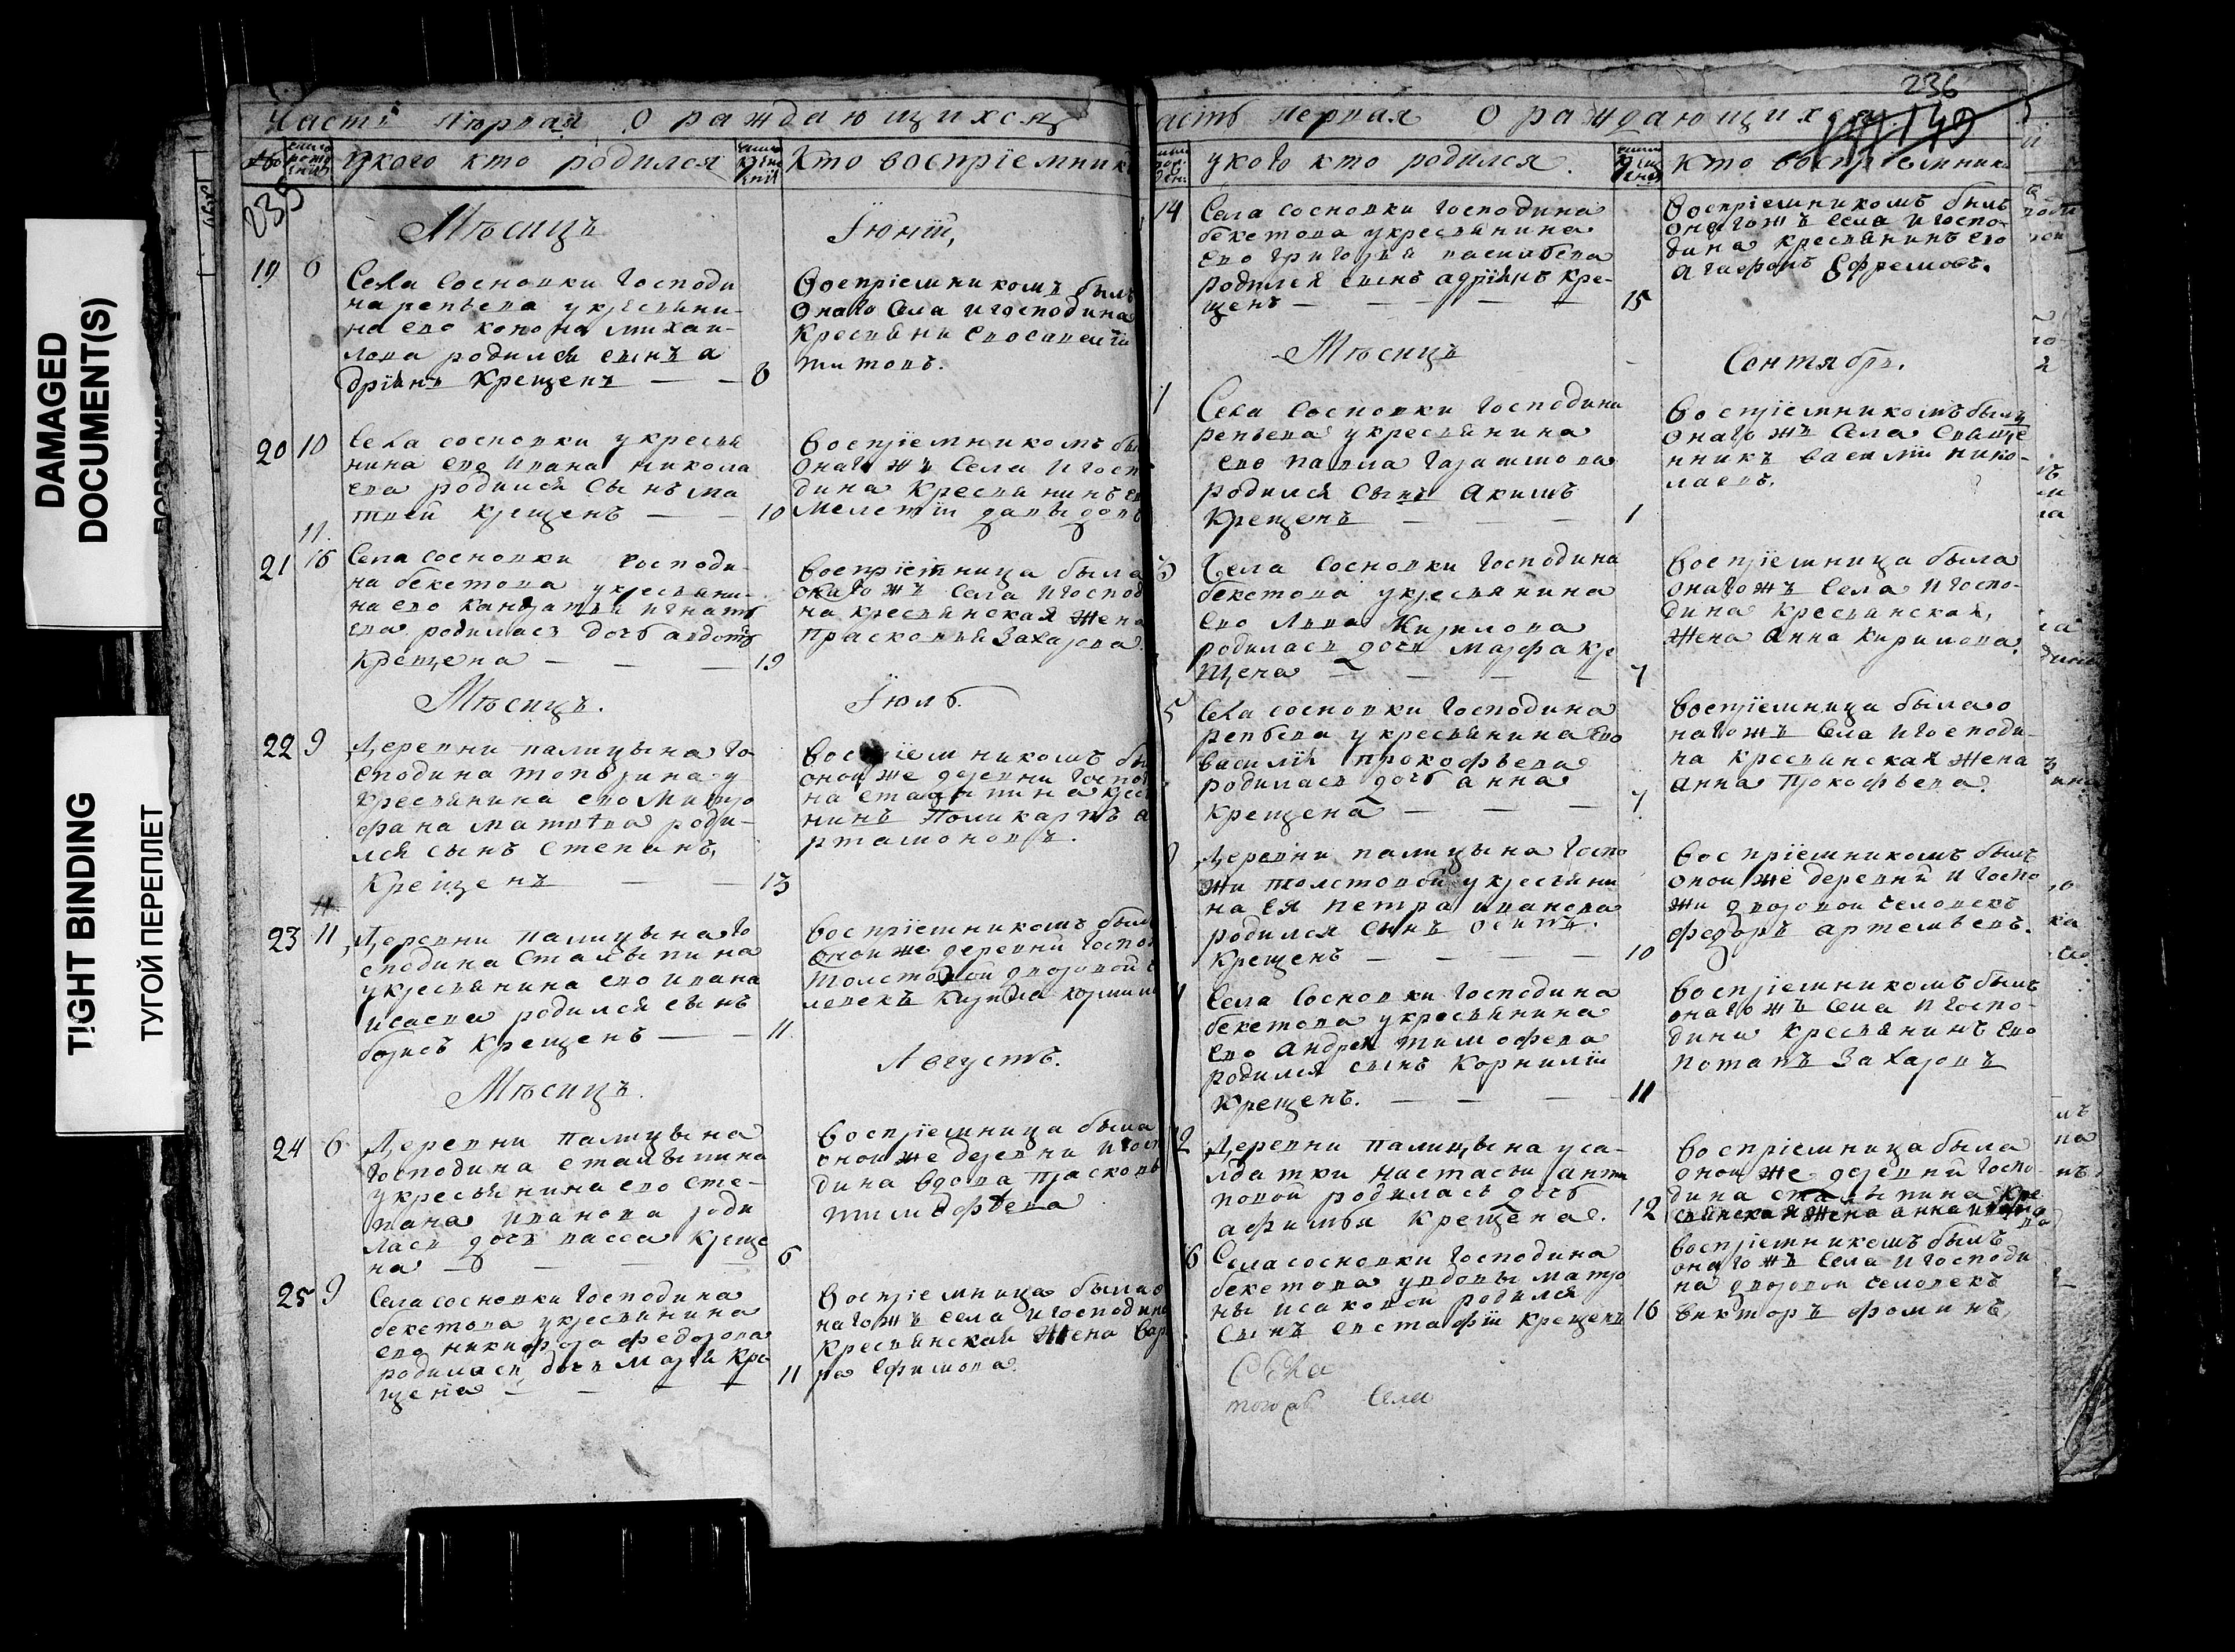 DAMAGED
DOCUMENT(S)
TIGHT BINDING
ТУГОЙ ПЕРЕПЛЕТ
Часть первая О раждающихся
укого кто родился
Кто восприемники
235
Мѣсяцъ
Іюній,
19 6
Села Сосновки Господи
на репьева укрестьяни-
на ево конона михаи-
лова родился сынъ а
дріянъ Крещенъ — — 8
Восприемникомъ былъ
Онаго Села и господина
Крестьяни ево савелій
титовъ.
20 10
Села сосновки укрестья
нина ево ивана никола
ева родился Сынъ ма
твеи крещенъ — — 10
11.
Восприемникомъ бы
Онаго жъ Села и госп
дина Крестьянинъ ев
Мелетій давыдовъ
21 16
Села сосновки Господи-
на бекетова укрестьяни-
на ево кандратья игнать
ева родилась дочь авдотья
крещена — — — 19
Восприемница была
онаго жъ Села и господ
на крестьянская жена
прасковья Захарова.
Мѣсяцъ.
Іюль.
22 9
Деревни палицына го
сподина топорина у
крестьянина ево Митро
фана матвѣва роди-
лся сынъ степанъ,
Крещенъ — — 13
Восприемникомъ бы
оной же деревни Госпо
на сталыпина крес
нинъ Поликарпъ а
ртамоновъ.
23 11
Деревни палицына го
сподина Сталыпина
укрестьянина ево ивана
исаева родился сынъ
борисъ Крещенъ — — 11.
Восприемникомъ был
Оной же деревни Госпо
Толстовой дворовой
ловекъ Кирила
Мѣсяцъ.
Августъ.
24 6
Деревни палицына
Господина сталыпина
укрестьянина ево сте-
пана иванова роди
лась дочь васса Креще
на — — — 6
Восприемница была
оной же деревни и госп
дина вдова Прасковь
тимофѣева
25 9
Села сосновки Господина
бекетова укрестьянина
ево никифора федорова
родилась дочь Марья Кре
щена — — — — 11
Восприемница была о
наго жъ села и господина
крестьянская жена вар
ра Ефимова.
236
149
асть первая О раждающихся
укого кто родился.
Кто восприемники
14
Села сосновки господина
бекетова укрестьянина
ево григорья васильева
родился сынъ адріянъ Кре-
щенъ — — — — 15
Восприемникомъ былъ
онаго жъ Села и госпо-
дина крестьянинъ ево
Агафонъ Ефремовъ.
Мѣсяцъ
Сентябрь.
1
Села Сосновки Господина
репьева укрестьянина
ево павла
родился Сынъ Акимъ
Крещенъ — — — 1
Восприемникомъ былъ
Онаго жъ Села Свяще
нникъ василій нико-
лаевъ.
3
Села Сосновки Господина
бекетова укрестьянина
Ево Льва Кирилова
родилась дочь Марфа кре
щена — — — — 7
Восприемница была
онаго жъ Села и Госпо-
дина крестьянская,
жена Анна Кирилова.
5
Села сосновки Господина
репьева укрестьянина Ево
василья прокофьева
родилась дочь анна
крещена — — — 7
восприемница была о
наго жъ Села и Господи-
на крестьянская жена
Анна Прокофьева.
Деревни палицына Госпо
жи толстовой укрестьяни
на ея петра иванова
родился Сынъ осипъ.
Крещенъ — — — — 10
Восприемникомъ былъ
оной же деревни и Госпо
жи дворовой человекъ
федоръ артемьевъ.
Села Сосновки Господина
бекетова укрестьянина
Ево андрея тимофева
родился сынъ Корнилій
Крещенъ. — — — 11
Восприемникомъ былъ
онаго жъ Села и Госпо-
дина крестьянинъ Ево
потапъ Захаровъ
12
Деревни палицына уса-
лдатки настасьи анти
повой родилась дочь
афимья Крещена. 12
Восприемница была
оной же деревни Госпо-
дина сталыпина Кре
стьянская жена анна
16
Села сосновки Господина
бекетова увдовы матро
ны исаковой родился
Сынъ Евстафій Крещенъ 16
Восприемникомъ былъ
онаго жъ Села и Господи
на дворовой человекъ
Викторъ фоминъ,
Села